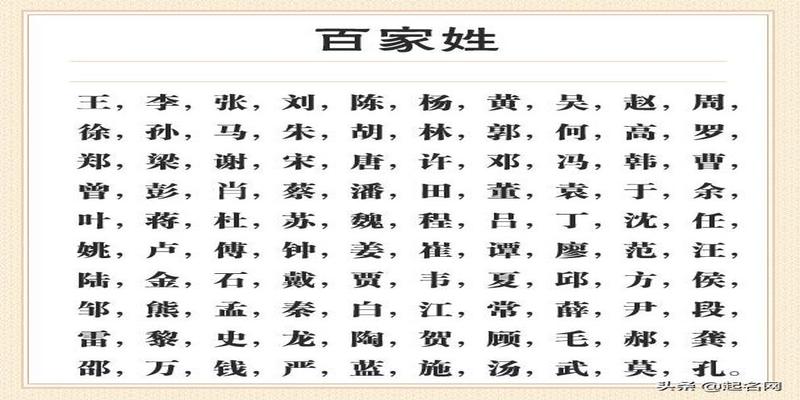 百家姓
王，李，张，刘，陈，杨，黄，吴，赵，周，
徐，孙，马，朱，胡，林，郭，何，高，罗，
郑，梁，谢，宋，唐，许，邓，冯，韩，曹，
曾，彭，肖，蔡，潘，田，董，袁，于，余，
叶，蒋，杜，苏，魏，程，吕，丁，沈，任，
姚，卢，傅，钟，姜，崔，谭，廖，范，汪，
陆，金，石，戴，贾，韦，夏，邱，方，侯，
邹，熊，孟，秦，白，江，常，薛，尹，段，
雷，黎，史，龙，陶，贺，顾，毛，郝，龚，
邵，万，钱，严，蓝，施，汤，武，莫，孔。
头条 @起名网